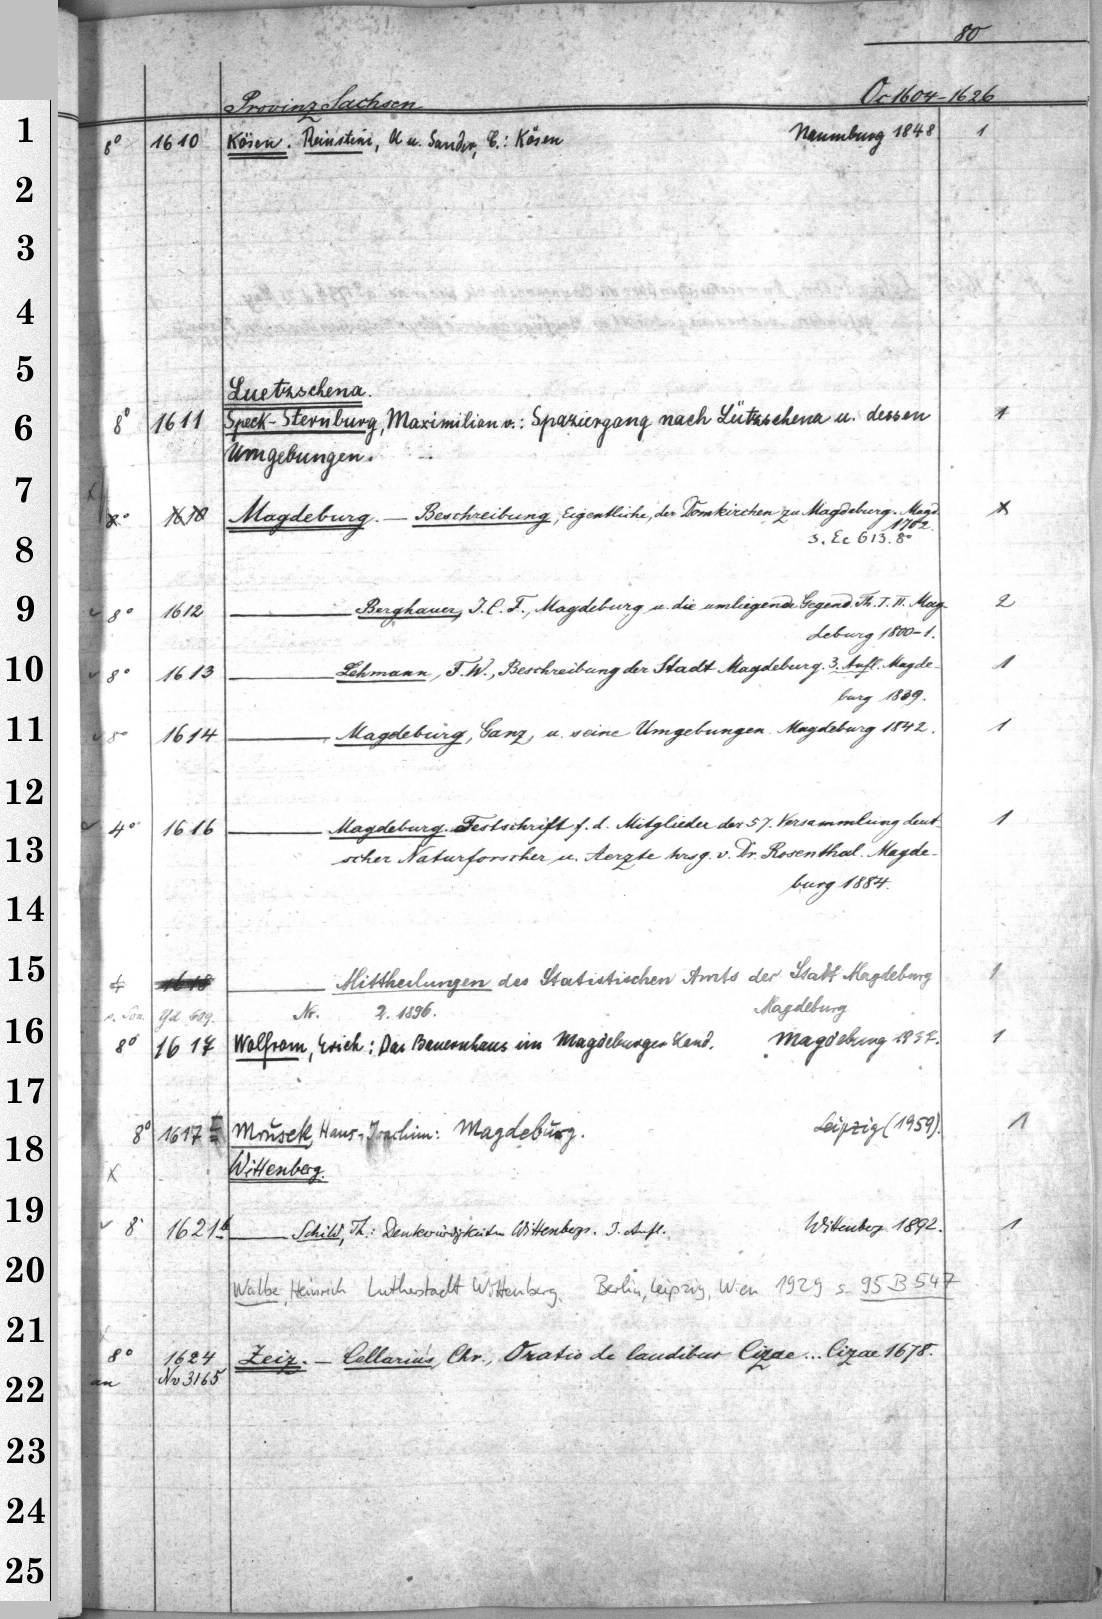 80
Provinz Sachsen Oc 1604-1626
1 8° 1610 Kösen. Reinstein, A u. Sander, C.: Kösen Naumburg 1848 1
2
3
4
5
Luetzschena.
6 8° 1611 Speck-Sternburg, Maximilian v.: Spaziergang nach Lützschena u. dessen 1
Umgebungen.
7
8° Magdeburg. — Beschreibung, Eigentliche, der Domkirchen zu Magdeburg. Magd.
1702.
8 s. Ec 613. 8°
9 8° 1612 — Berghauer, J. C. F., Magdeburg u. die umliegende Gegend. Th. I. II. Mag- 2
deburg 1800-1.
10 8° 1613 — Lehmann, F. W., Beschreibung der Stadt Magdeburg. 3. Aufl. Magde- 1
burg 1839.
11 8° 1614 — Magdeburg, Ganz, u. seine Umgebungen. Magdeburg 1842. 1
12
4° 1616 — Magdeburg. Festschrift f. d. Mitglieder der 57. Versammlung deut- 1
13 scher Naturforscher u. Aerzte hrsg. v. Dr. Rosenthal. Magde-
burg 1884.
14
15 4 1618 — Mittheilungen des Statistischen Amts der Stadt Magdeburg 1
Nr. 2. 1896. Magdeburg
16 8° 1617 Wolfram, Erich: Das Bauernhaus im Magdeburger Land. Magdeburg 1937. 1
17
8° 1617 Mrusek, Hans-Joachim: Magdeburg. Leipzig (1959). 1
18 Wittenberg.
19 8° 1621b — Schild, Th.: Denkwürdigkeiten Wittenbergs. 3. Aufl. Wittenberg 1892. 1
20 Walbe, Heinrich Lutherstadt Wittenberg. Berlin, Leipzig, Wien 1929 s. 95 B 547
21
8° 1624 Zeiz. — Cellarius, Chr., Oratio de laudibus Cizae... Cizae 1678.
22 an Nv 3165
23
24
25